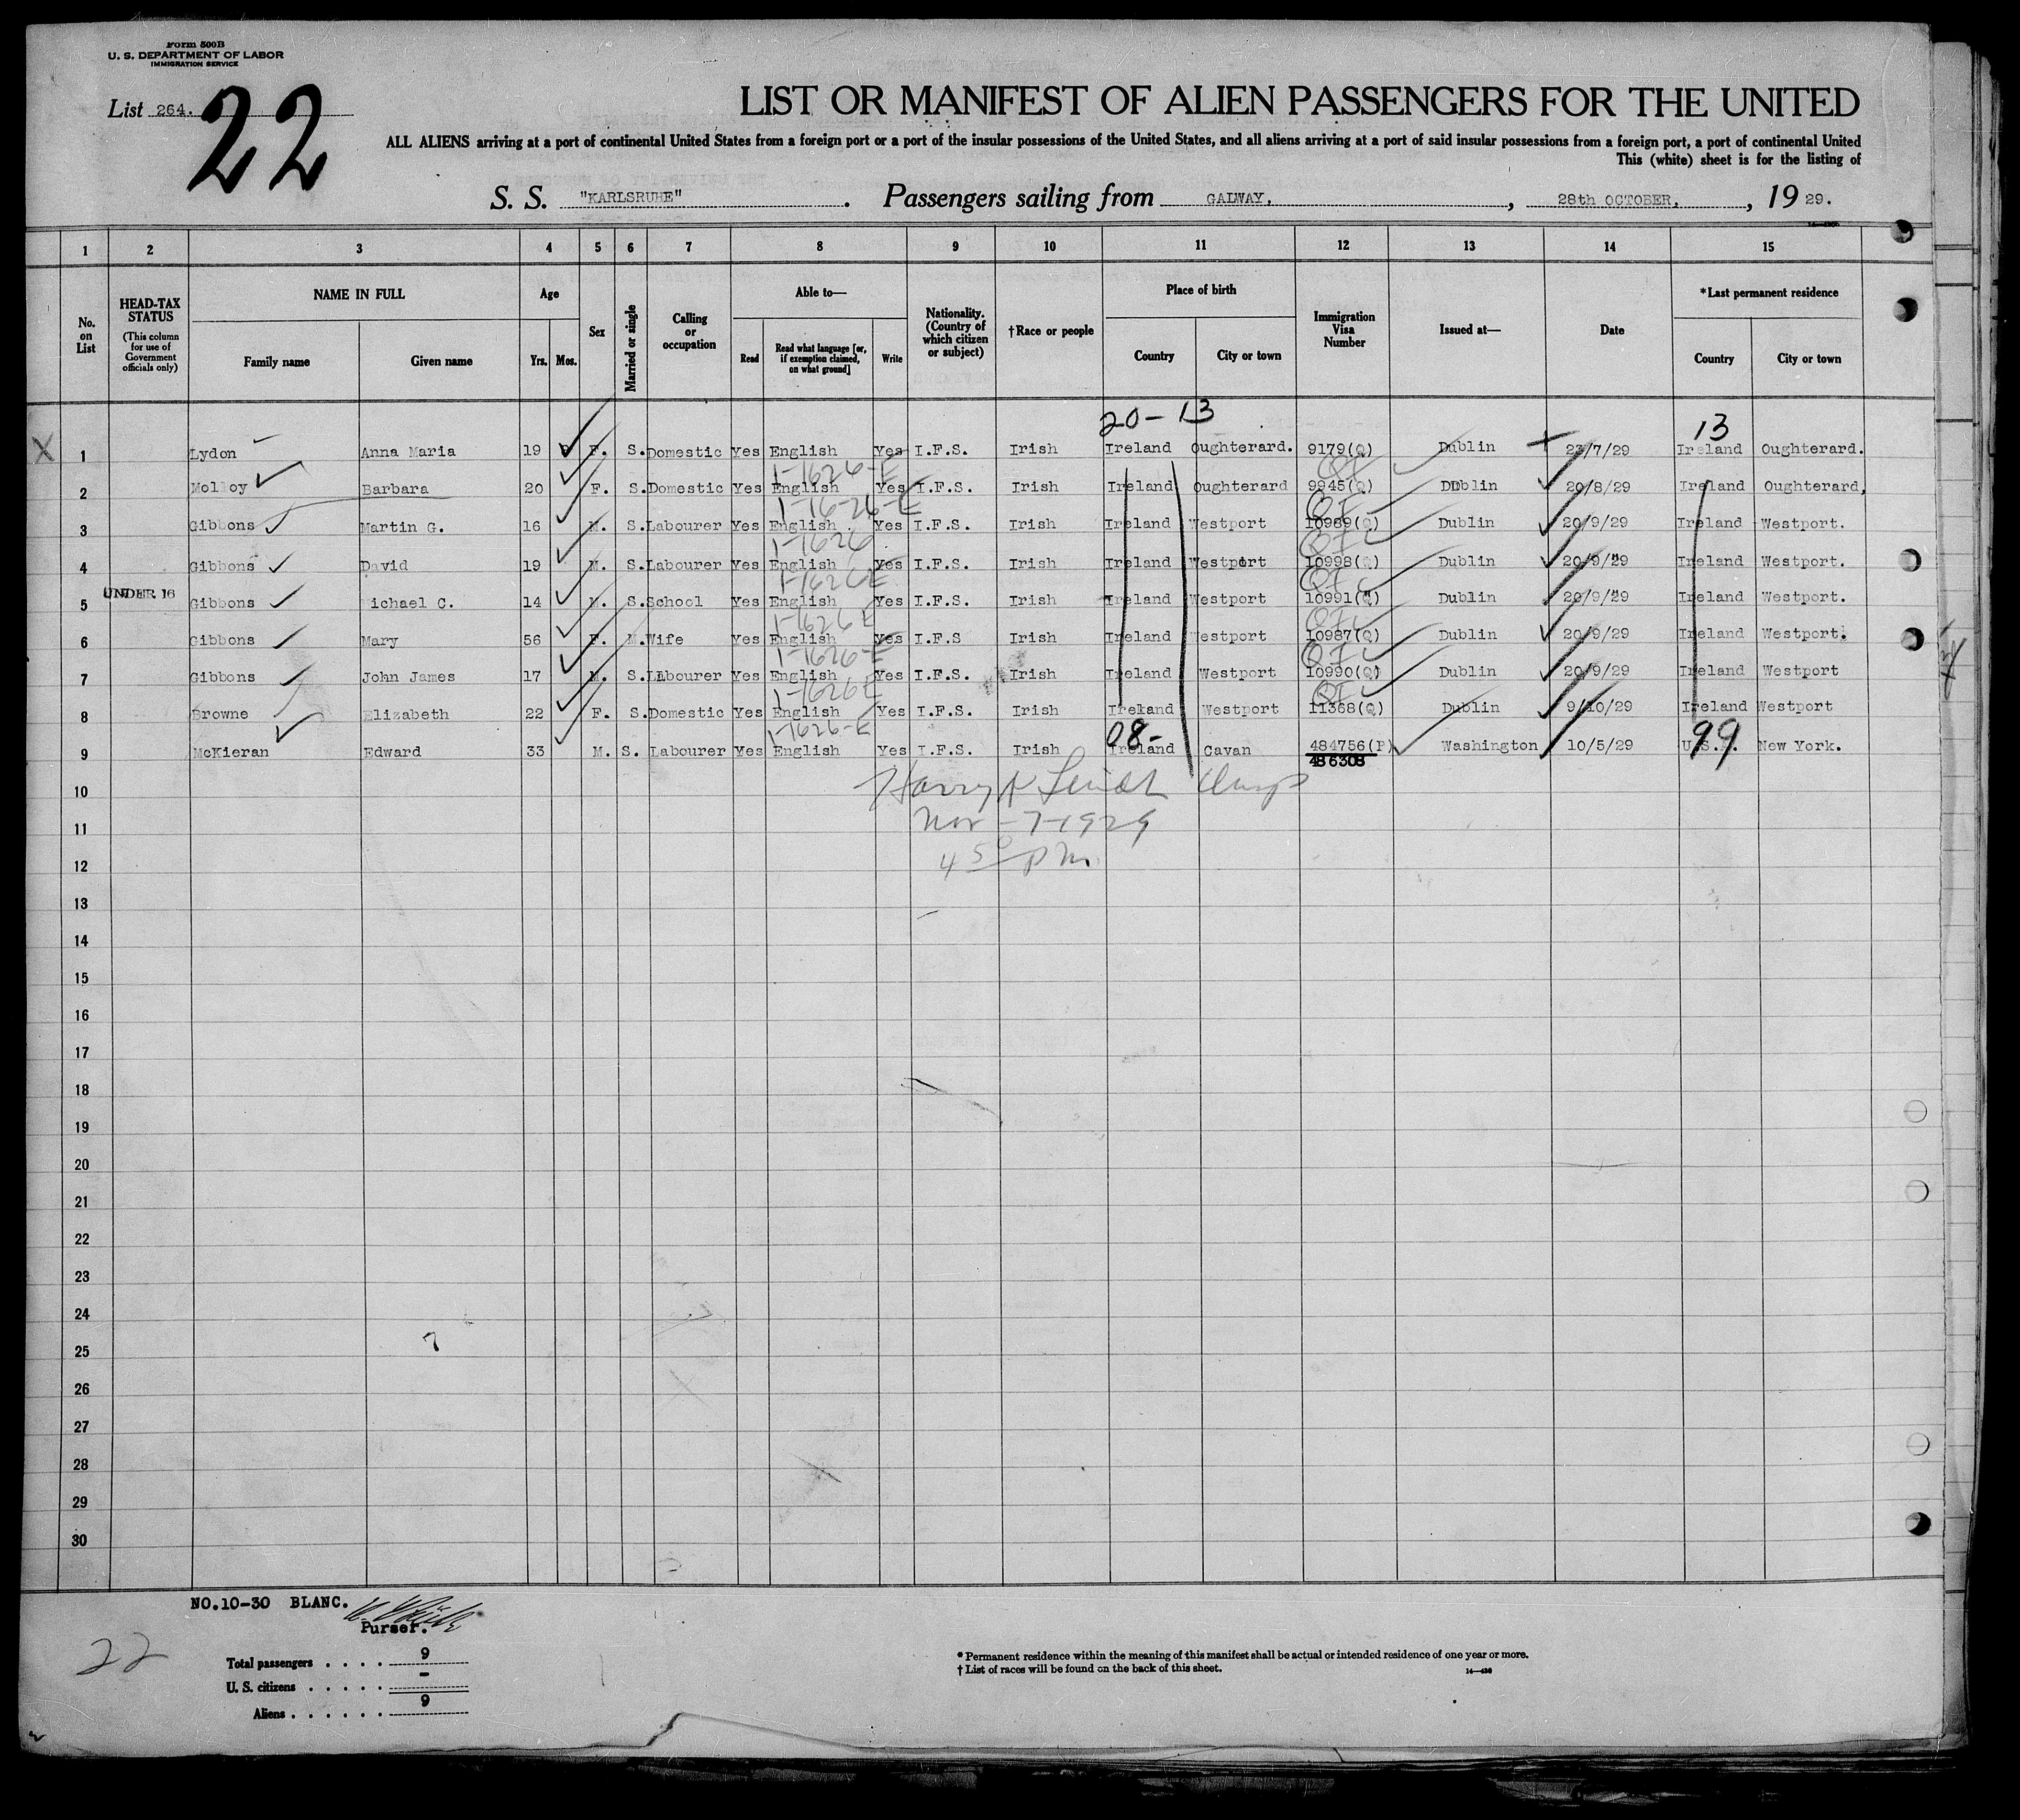 Form 500B
U. S. DEPARTMENT OF LABOR
IMMIGRATION SERVICE
List 264.
22
LIST OR MANIFEST OF ALIEN PASSENGERS FOR THE UNITED
ALL ALIENS arriving at a port of continental United States from a foreign port or a port of the insular possessions of the United States, and all aliens arriving at a port of said insular possessions from a foreign port, a port of continental United
This (white) sheet is for the listing of
S. S. "KARLSRUHE". Passengers sailing from GALWAY, , 28th OCTOBER, , 19 29.
1 2 3 4 5 6 7 8 9 10 11 12 13 14 15
No. on List
HEAD-TAX STATUS
(This column for use of Government officials only)
NAME IN FULL
Family name Given name
Age
Yrs. Mos.
Sex
Married or single
Calling or occupation
Able to—
Read
Read what language [or, if exemption claimed, on what ground]
Write
Nationality. (Country of which citizen or subject)
†Race or people
Place of birth
Country City or town
Immigration Visa Number
Issued at—
Date
*Last permanent residence
Country City or town
20-13 13
X 1 Lydon Anna Maria 19 F. S. Domestic Yes English Yes I.F.S. Irish Ireland Oughterard. 9179(Q) Dublin 23/7/29 Ireland Oughterard.
1-1626-E QI
2 Molloy Barbara 20 F. S. Domestic Yes English Yes I.F.S. Irish Ireland Oughterard 9945(Q) Dublin 20/8/29 Ireland Oughterard,
1-16-26-E QI
3 Gibbons Martin G. 16 M. S. Labourer Yes English Yes I.F.S. Irish Ireland Westport 10989(Q) Dublin 20/9/29 Ireland Westport.
1-1626 QI
4 Gibbons David 19 M. S. Labourer Yes English Yes I.F.S. Irish Ireland Westport 10998(Q) Dublin 20/9/29 Ireland Westport.
1-1626E QI
UNDER 16
5 Gibbons Michael C. 14 M. S. School Yes English Yes I.F.S. Irish Ireland Westport 10991(Q) Dublin 20/9/29 Ireland Westport.
1-1626E QI
6 Gibbons Mary 56 F. M. Wife Yes English Yes I.F.S Irish Ireland Westport 10987(Q) Dublin 20/9/29 Ireland Westport.
1-1626-E QI
7 Gibbons John James 17 M. S. Labourer Yes English Yes I.F.S. Irish Ireland Westport 10990(Q) Dublin 20/9/29 Ireland Westport
1-1626E QI
8 Browne Elizabeth 22 F. S. Domestic Yes English Yes I.F.S. Irish Ireland Westport 11368(Q) Dublin 9/10/29 Ireland Westport
1-1626-E 08- 99
9 McKieran Edward 33 M. S. Labourer Yes English Yes I.F.S. Irish Ireland Cavan 484756(P) Washington 10/5/29 U.S.A. New York.
486308
10 Harry
11 Nov-7-1929
12 4 50 PM.
13
14
15
16
17
18
19
20
21
22
23
24
25 7
26
27
28
29
30
NO.10-30 BLANC.
Purser.
22
Total passengers . . . . 9
U. S. citizens . . . . . -
Aliens . . . . . . 9
* Permanent residence within the meaning of this manifest shall be actual or intended residence of one year or more.
† List of races will be found on the back of this sheet. 14—430